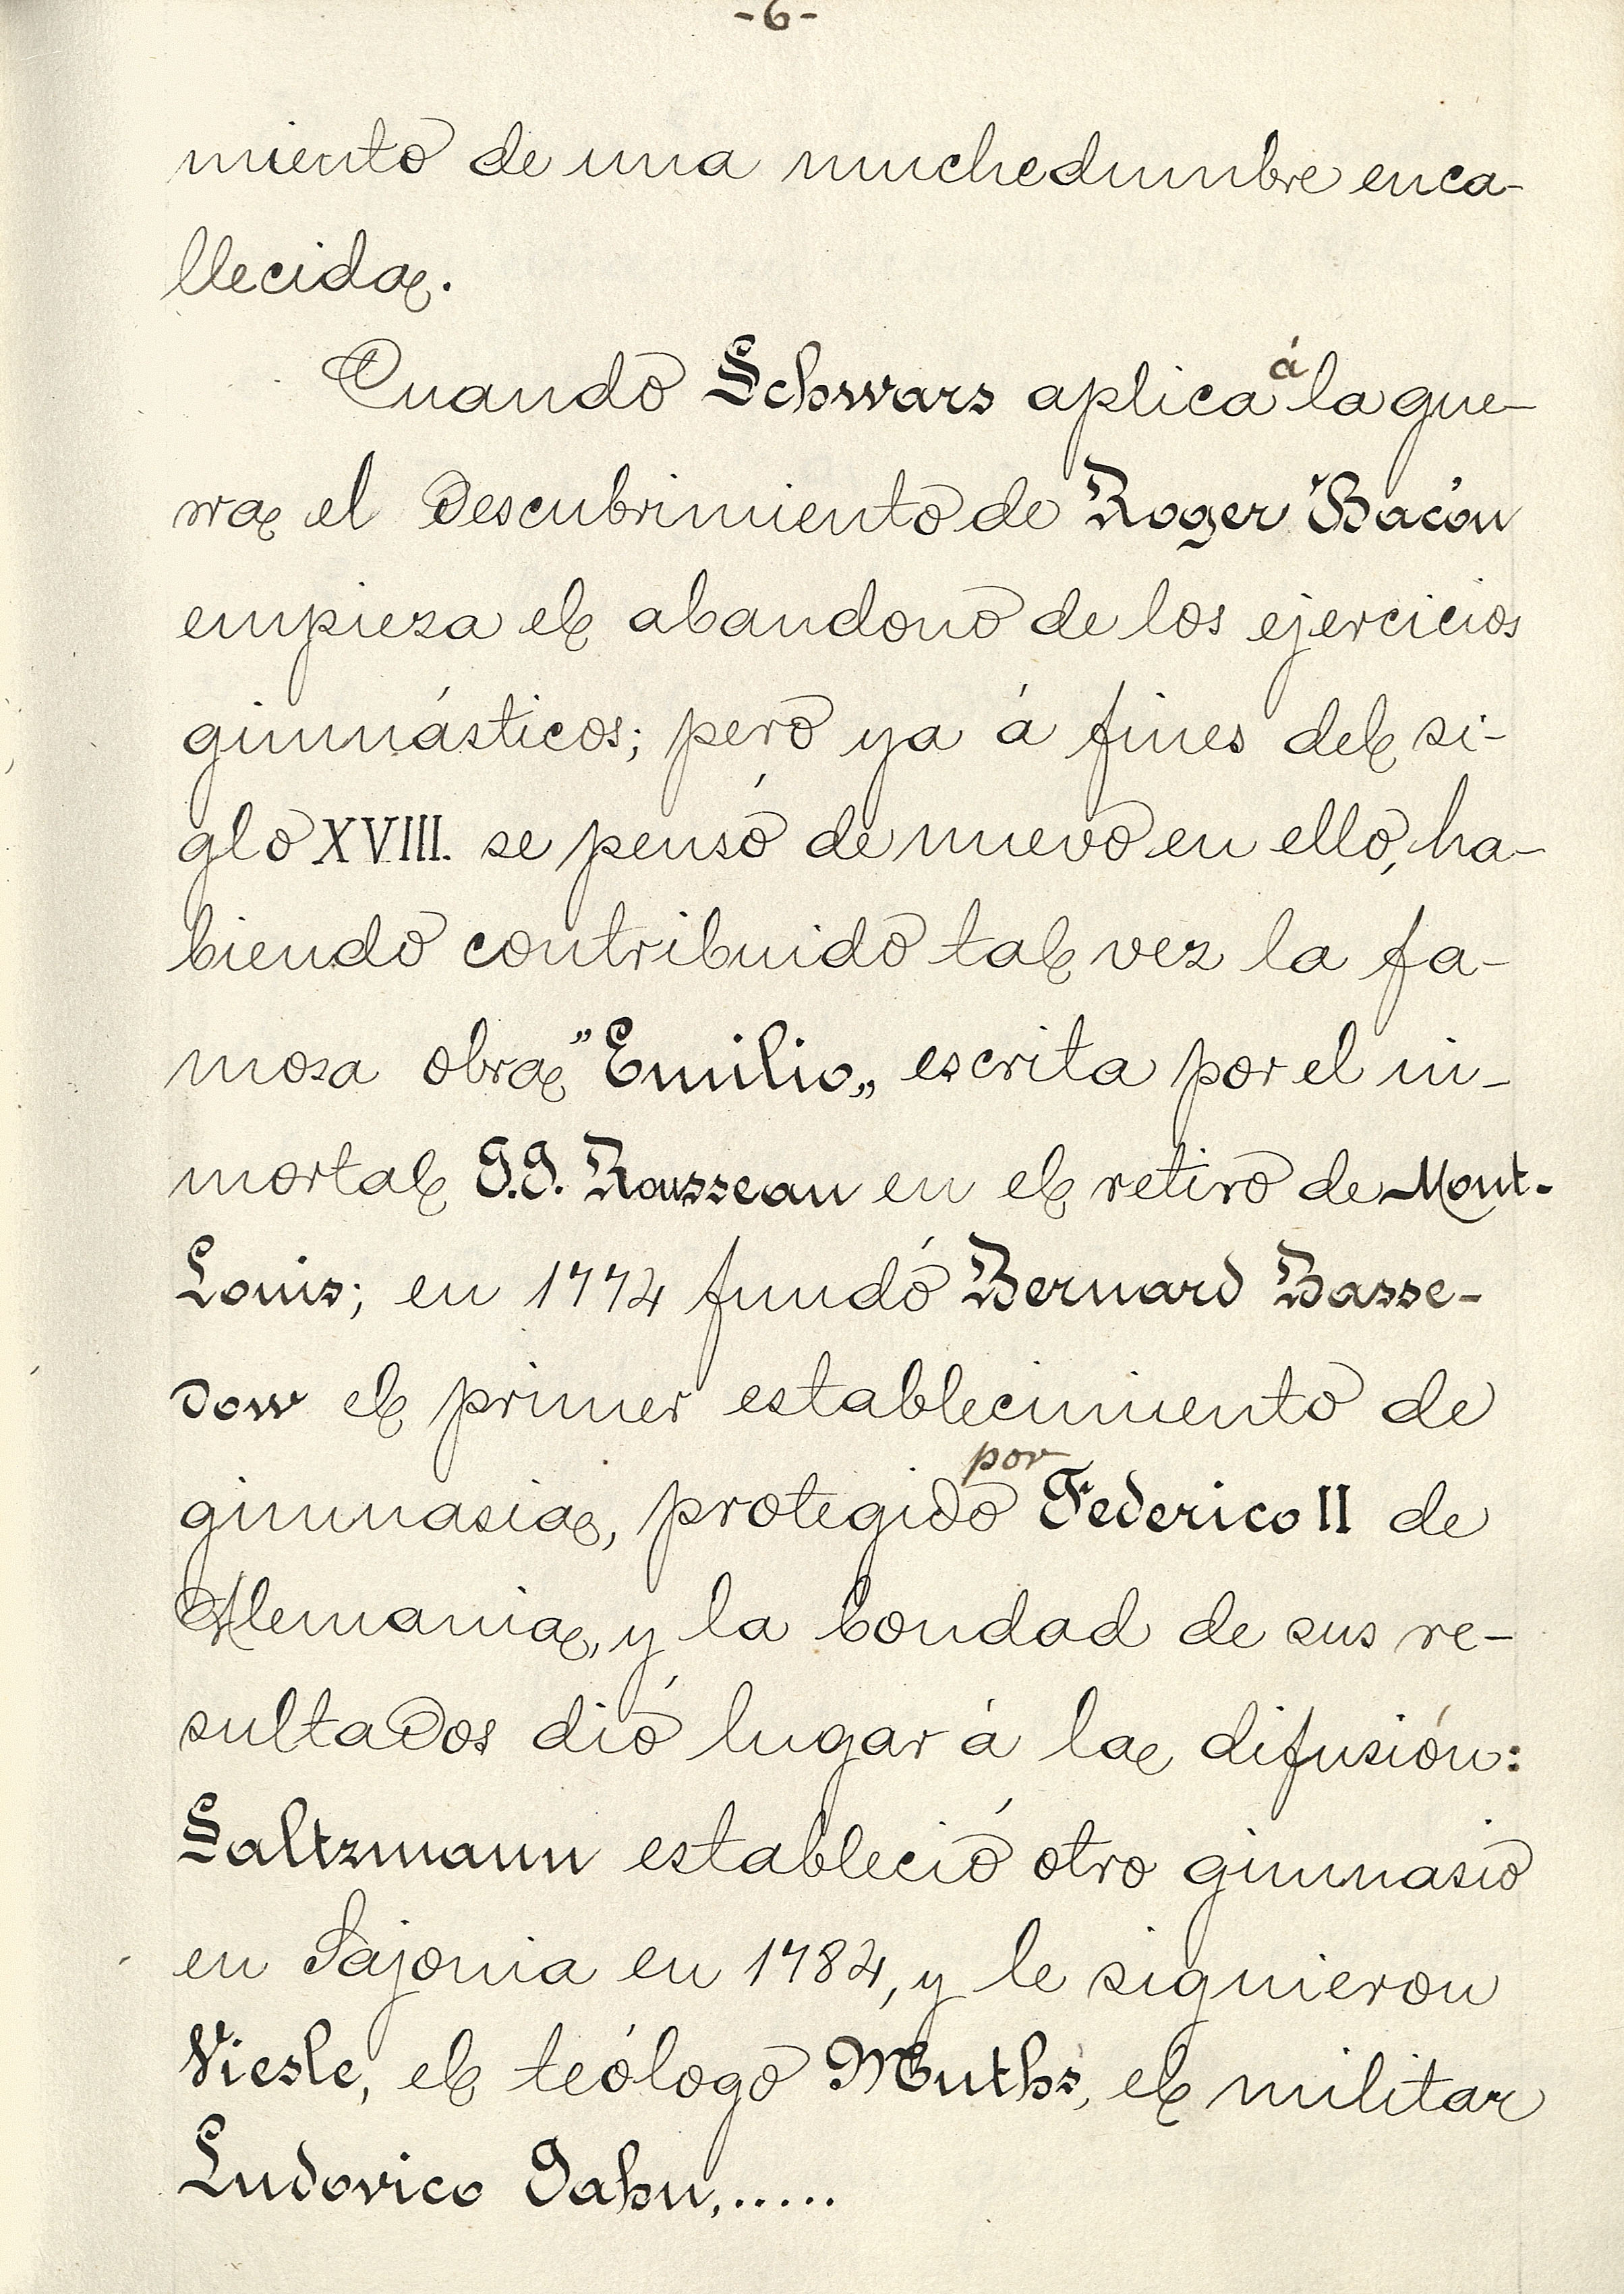 -6-
miento de una muchedumbre enca-
llecida.
Cuando Schwars aplica á la gue-
rra el descubrimiento de Roger Bacón
empieza el abandono de los ejercicios
gimnásticos; pero ya á fines del si-
glo XVIII. se pensó de nuevo en ello, ha-
biendo contribuido tal vez la fa-
mosa obra "Emilio„ escrita por el in-
mortal J.J. Rousseau en el retiro de Mont-
Louis; en 1774 fundó Bernard Basse-
dow el primer establecimiento de
gimnasia, protegido por Federico II de
Alemania, y la bondad de sus re-
sultados dió lugar á la difusión:
Saltzmann estableció otro gimnasio
en Sajonia en 1784, y le siguieron
Viesle, el teólogo Muths, el militar
Ludovico Jahn,.....